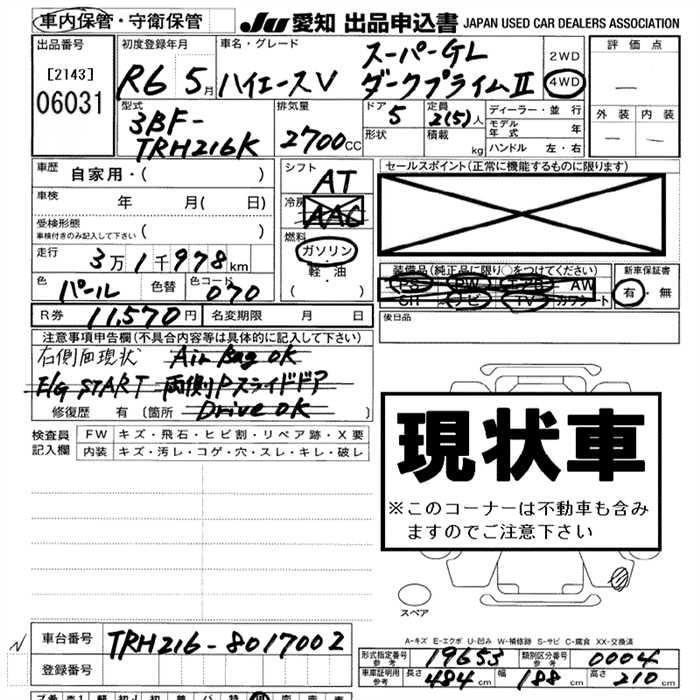 車内保管・守衛保管
JU 愛知 出品申込書 JAPAN USED CAR DEALERS ASSOCIATION
出品番号
[2143]
06031
初度登録年月
R6 5月
車名・グレード
ハイエースV スーパーGL
ダークプライムⅡ
2WD
4WD
評価点
—
外装 内装
— —
型式
3BF-
TRH216K
排気量
2700cc
ドア 5
形状
定員 2(5)人
積載 kg
ディーラー・並行
モデル年式 年
ハンドル 左・右
車歴 自家用・( )
車検 年 月( 日)
受検形態
車検付きのみ記入して下さい ( )
走行 3万1千978km
色 パール 色替 色コード 070
R券 11,570円 名変期限 月 日
シフト AT
冷房 AAC
燃料
ガソリン
軽・油
( )
セールスポイント(正常に機能するものに限ります)
装備品(純正品に限り○をつけてください)
PS PW エアB AW
SH ナビ TV カワシート
新車保証書
有・無
後日品
注意事項申告欄(不具合内容等は具体的に記入して下さい)
右側面現状 Air Bag OK
E/G START 両側Pスライドドア
Drive OK
修復歴 有 [箇所 ]
検査員記入欄
FW キズ・飛石・ヒビ割・リペア跡・X要
内装 キズ・汚レ・コゲ・穴・スレ・キレ・破レ
現状車
※このコーナーは不動車も含み
ますのでご注意下さい
スペア
A-キズ E-エクボ U-凹み W-補修跡 S-サビ C-腐食 XX-交換済
N 車台番号 TRH216-8017002
登録番号
形式指定番号 参考 19653 類別区分番号 参考 0004
車庫証明用 参考 長さ 484cm 幅 188cm 高さ 210cm